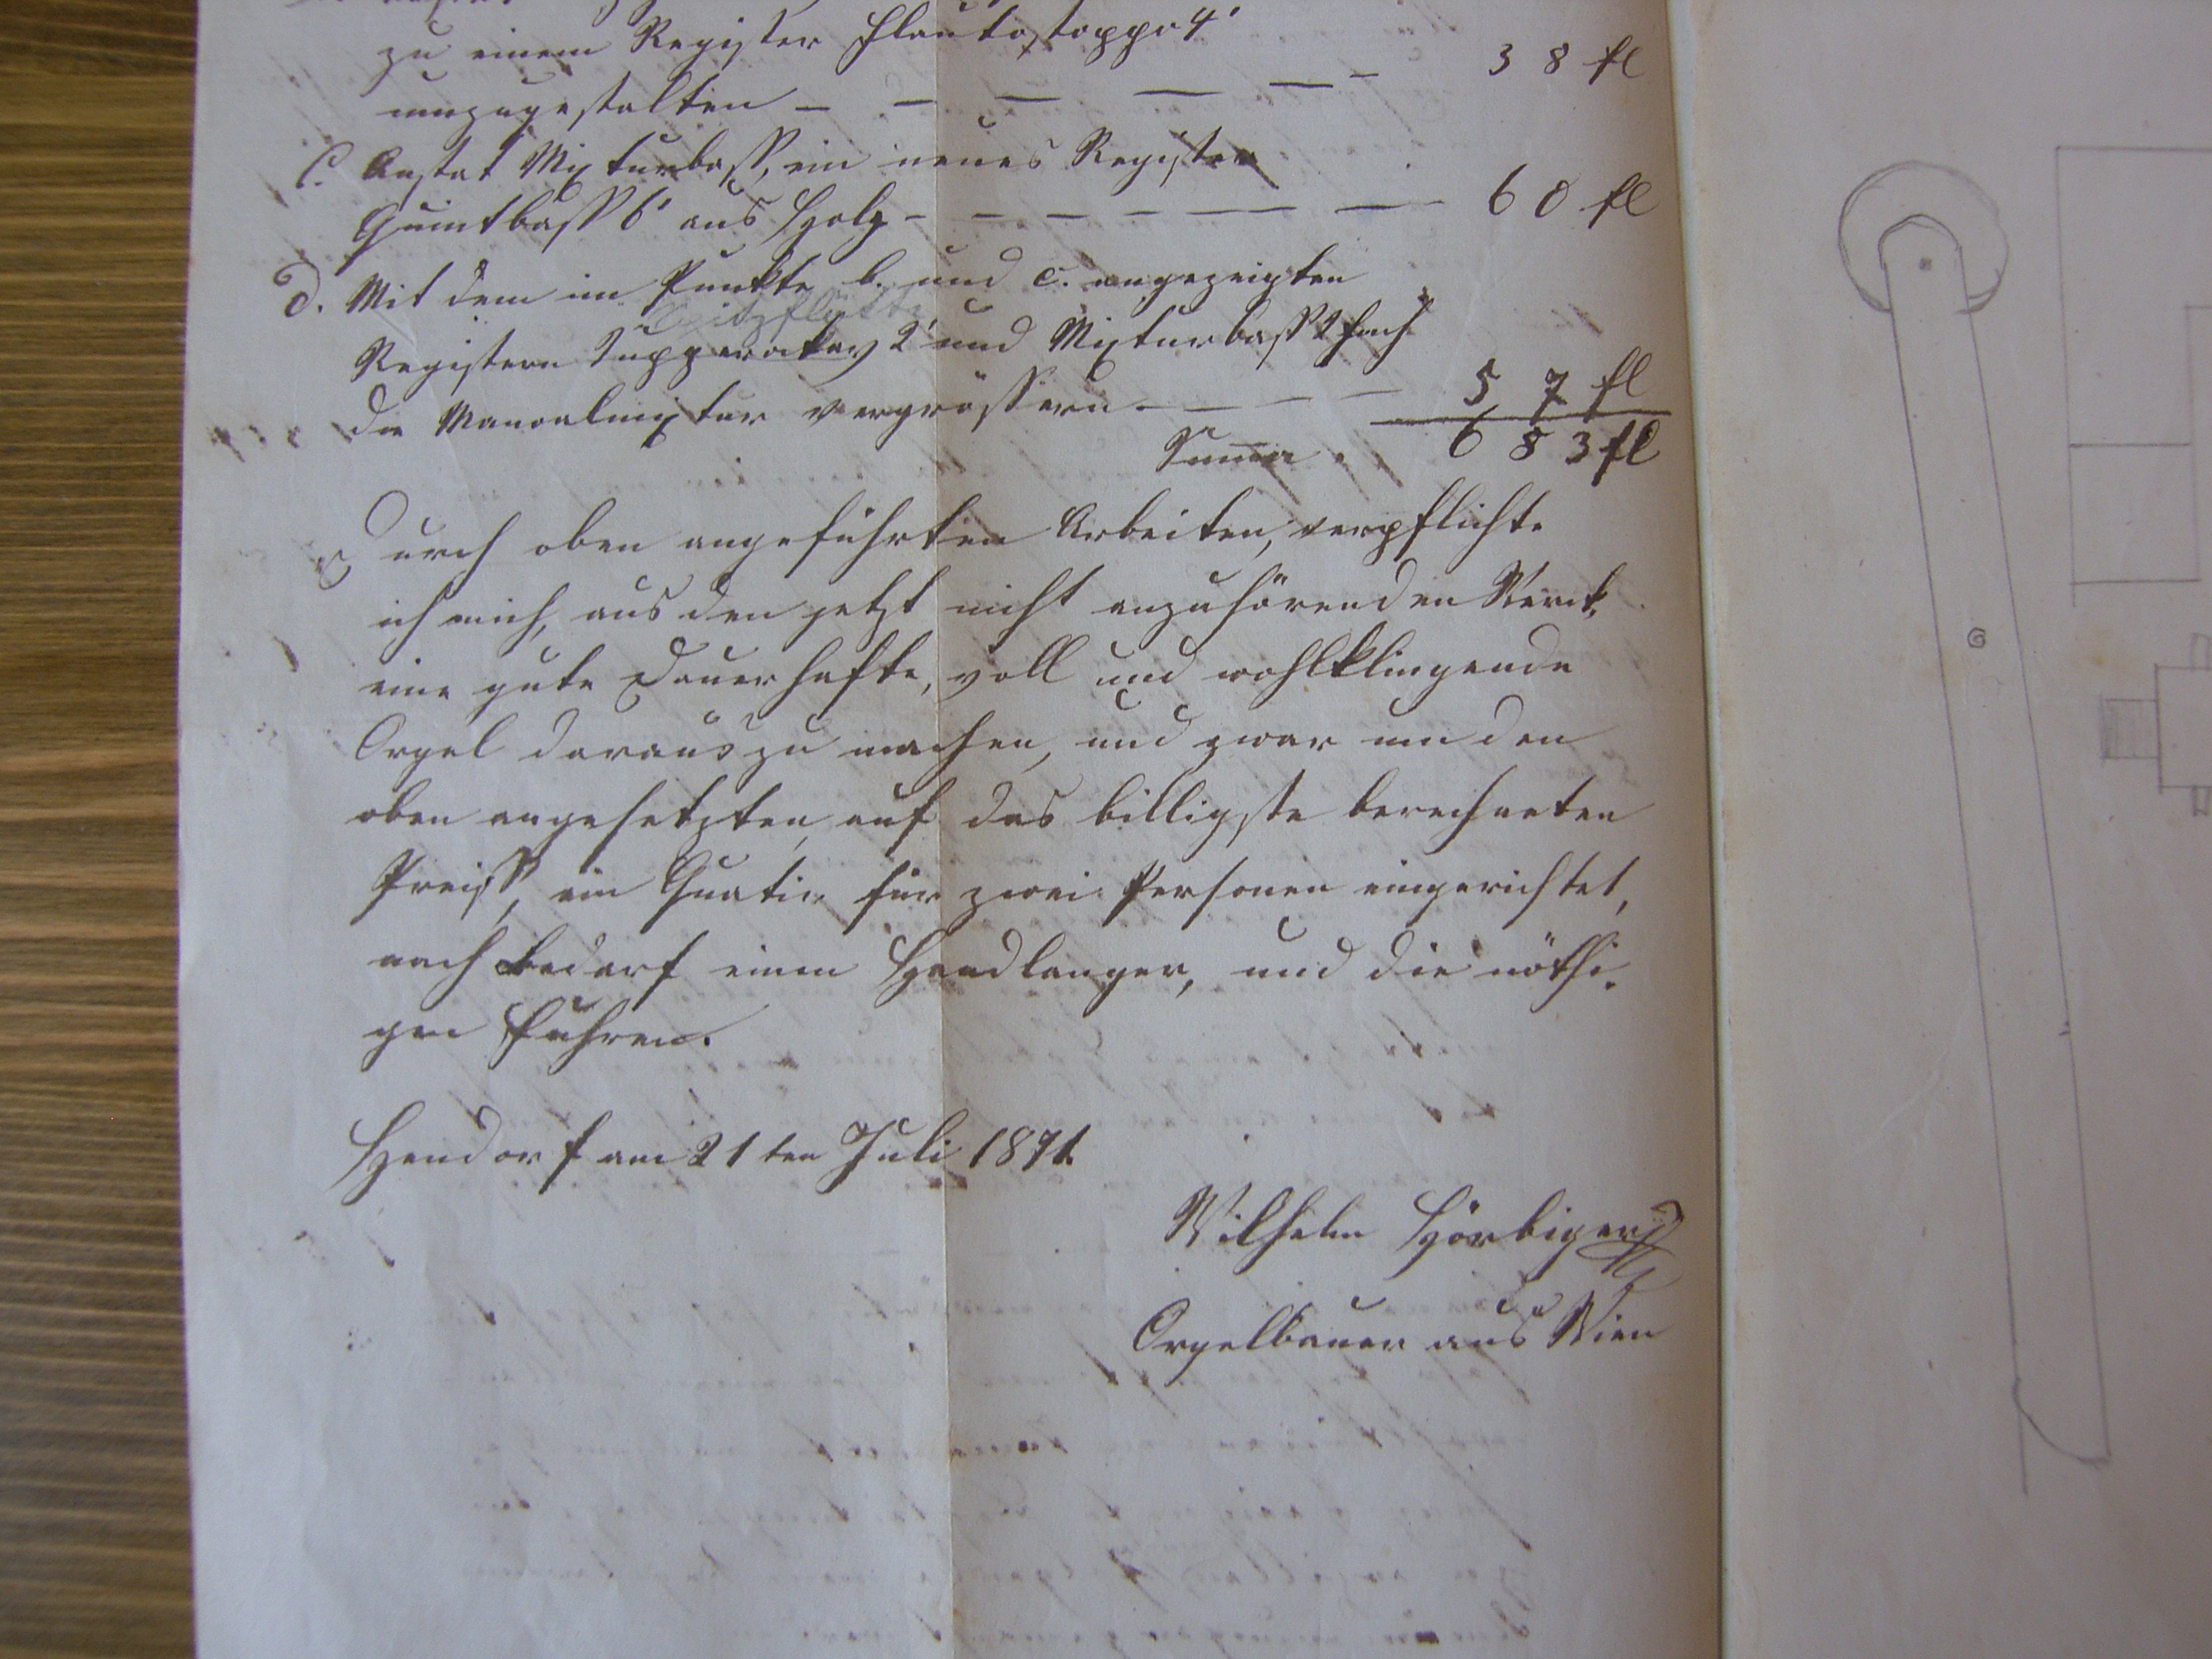 zu einem Register Flautostoppo 4'
umzugestalten — — — — — — 38 fl
C. Anstat Mixturbaß, ein neues Register
Quintbaß 6' aus Holz — — — — — — — 60 fl
d. Mit dem im Punkte b. und c. angezeigten
Spitzflötte
Registern Supperoktav 2' und Mixturbaß 2 fach
die Manoalmixtur vergrössern — — — — 57 fl
Summa . 683 fl
Durch oben angeführten Arbeiten, verpflichte
ich mich, aus den jetzt nicht anzuhörenden Werck,
eine gute dauerhafte, voll und wohlklingende
Orgel daraus zu machen, und zwar um den
oben angesetzten, auf das billigste berechneten
Preiß, ein Quatir für zwei Personen eingerichtet,
nach bedarf einen Handlanger, und die nöthi-
gen Fuhren.
Hendorf am 21ten Juli 1871.
Wilhelm Hörbiger
Orgelbauer aus Wien